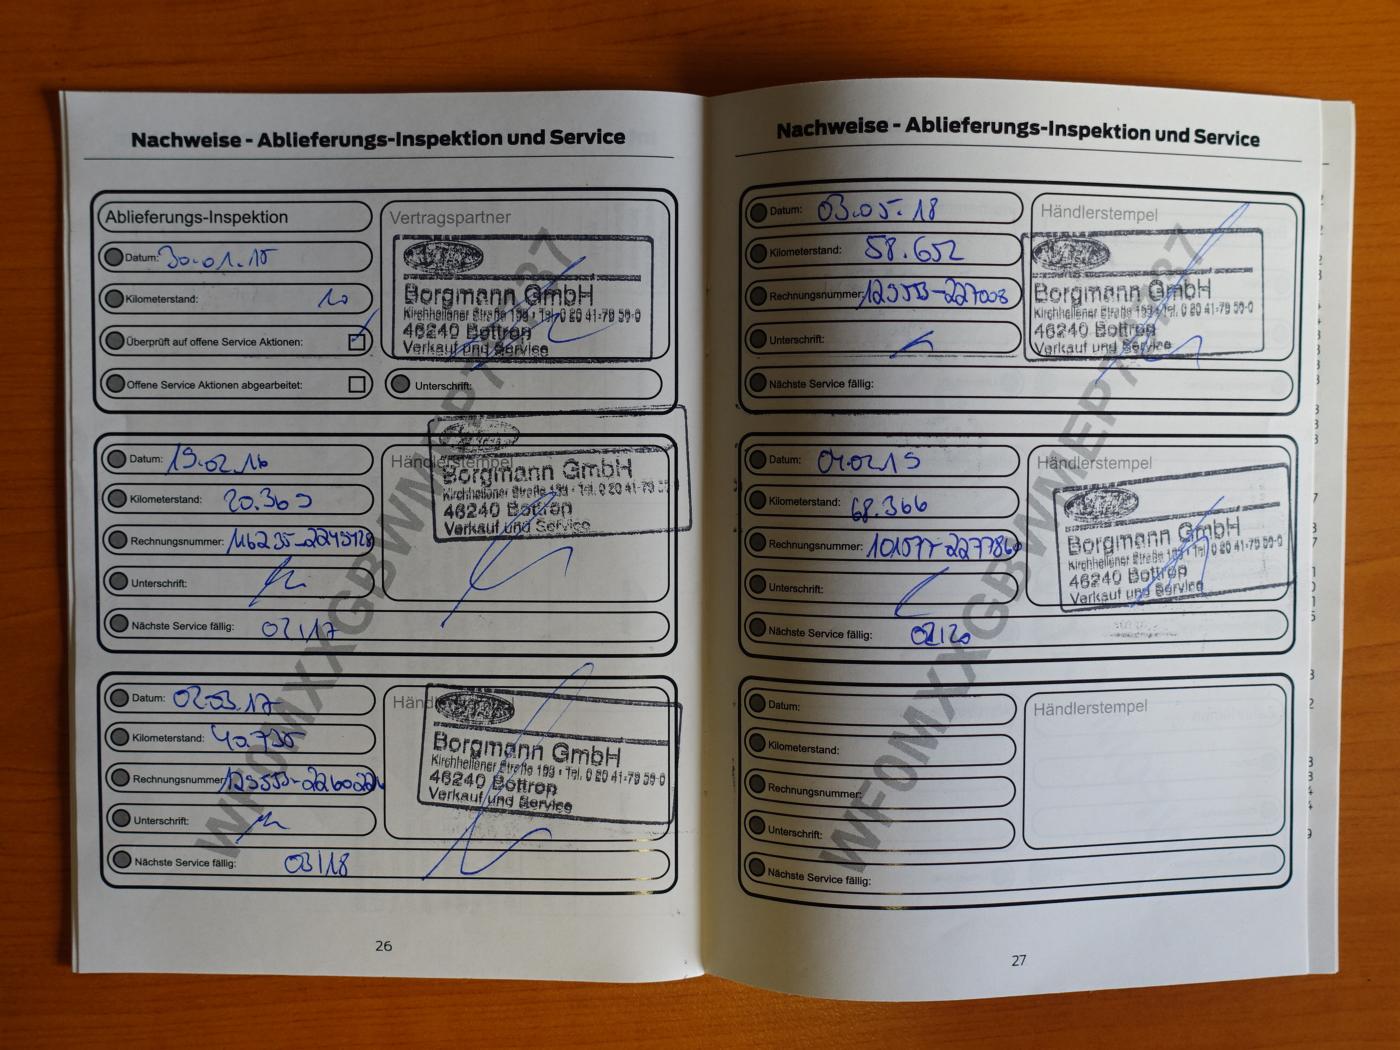 Nachweise - Ablieferungs-Inspektion und Service
Ablieferungs-Inspektion
Datum: 30.01.15
Kilometerstand: 10
Überprüft auf offene Service Aktionen:
Offene Service Aktionen abgearbeitet:
Vertragspartner
Borgmann GmbH
Kirchhellener Straße 199 • Tel. 0 20 41-79 59-0
46240 Bottrop
Verkauf und Service
Unterschrift:
Datum: 19.02.16
Kilometerstand: 20.369
Rechnungsnummer:
Unterschrift:
Nächste Service fällig: 02/17
Händlerstempel
Borgmann GmbH
Kirchhellener Straße 199 • Tel. 0 20 41-79 59-0
46240 Bottrop
Verkauf und Service
Datum: 02.03.17
Kilometerstand: 40.735
Rechnungsnummer:
Unterschrift:
Nächste Service fällig: 03/18
Borgmann GmbH
Kirchhellener Straße 199 • Tel. 0 20 41-79 59-0
46240 Bottrop
Verkauf und Service
26
Nachweise - Ablieferungs-Inspektion und Service
Datum: 03.05.18
Kilometerstand: 58.652
Rechnungsnummer: 129553-227008
Unterschrift:
Nächste Service fällig:
Händlerstempel
Borgmann GmbH
Kirchhellener Straße 199 • Tel. 0 20 41-79 59-0
46240 Bottrop
Verkauf und Service
Datum: 04.02.19
Kilometerstand: 68.366
Rechnungsnummer:
Unterschrift:
Nächste Service fällig: 02/20
Händlerstempel
Borgmann GmbH
Kirchhellener Straße 199 • Tel. 0 20 41-79 59-0
46240 Bottrop
Verkauf und Service
Datum:
Kilometerstand:
Rechnungsnummer:
Unterschrift:
Nächste Service fällig:
Händlerstempel
27